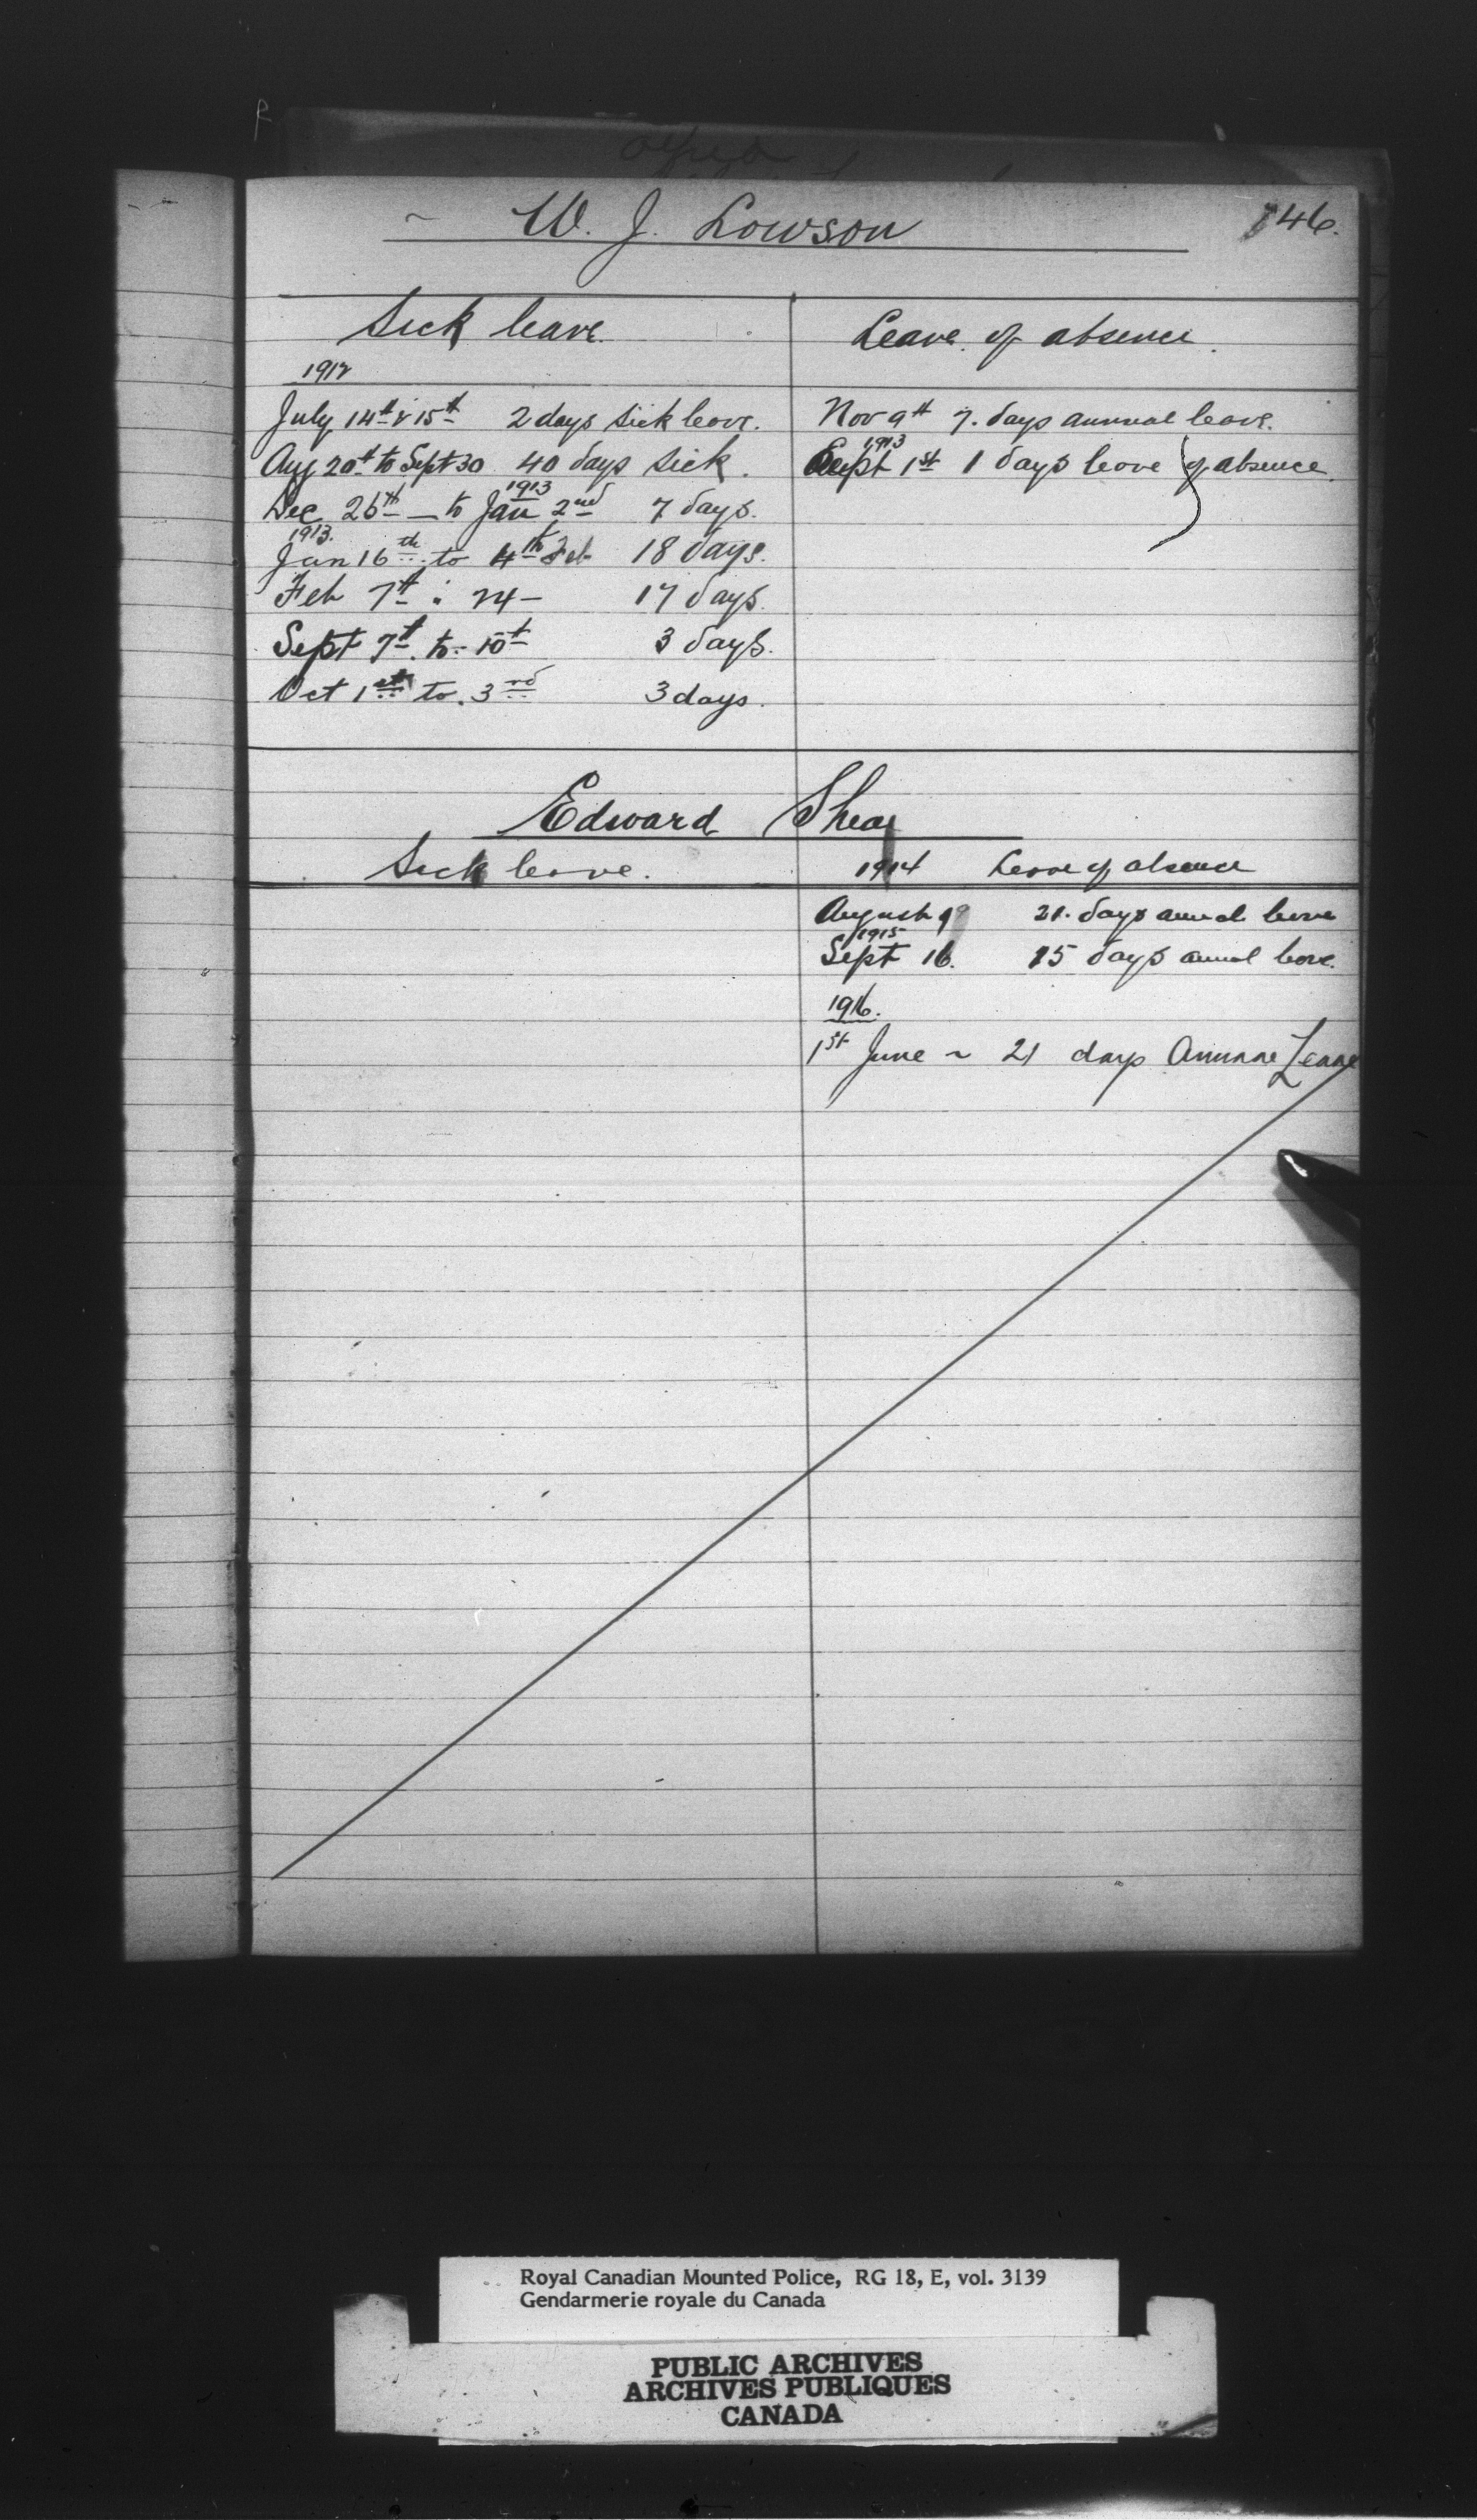 W. J. Lowson
146.
Sick leave.
Leave of absence.
1912
July 14th & 15th 2 days sick leave.
Nov 9th 7. days annual leave.
1913
Aug 20th to Sept 30 40 days sick.
Sept 1st 1 days leave of absence.
1913
Dec 26th — to Jan 2nd 7 days.
1913.
Jan 16th to 4th Feb 18 days.
Feb 7th " 24 — 17 days.
Sept 7th. to - 10th 3 days.
Oct 1st to. 3rd 3 days.
Edward Shea
Sick leave.
1914 Leave of absence
August 21. days annual leave
1915
Sept 16. 15 days annual leave.
1916.
1st June ~ 21 days Annual Leave
Royal Canadian Mounted Police, RG 18, E, vol. 3139
Gendarmerie royale du Canada
PUBLIC ARCHIVES
ARCHIVES PUBLIQUES
CANADA